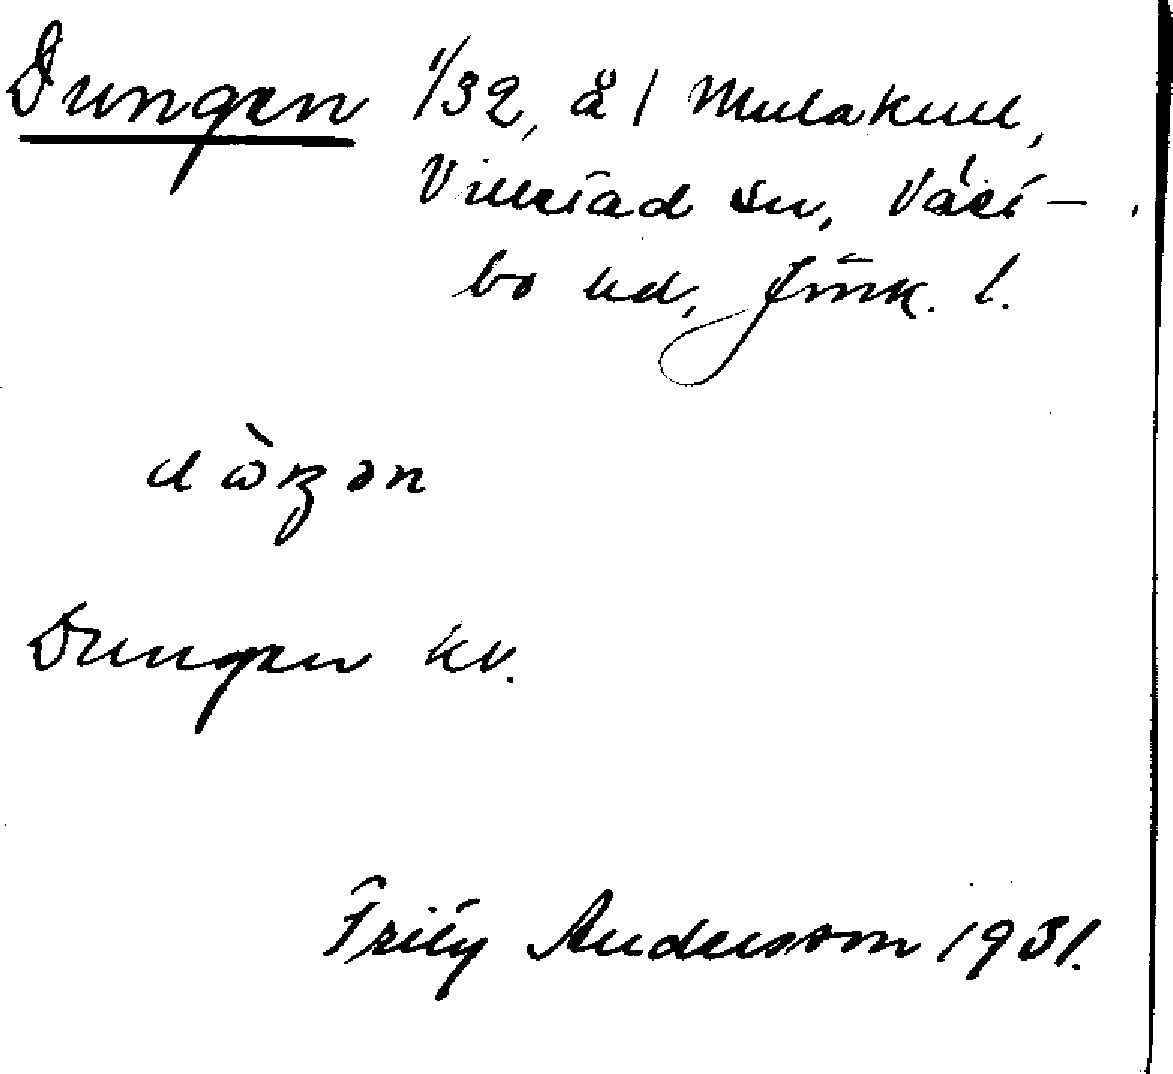 Dungen 1/32, å 1 Mulakull,
Villstad sn, Västbo
hd, Jönk. l.
dὼŋən
Dungen kv.
Fritz Andersson 1931.